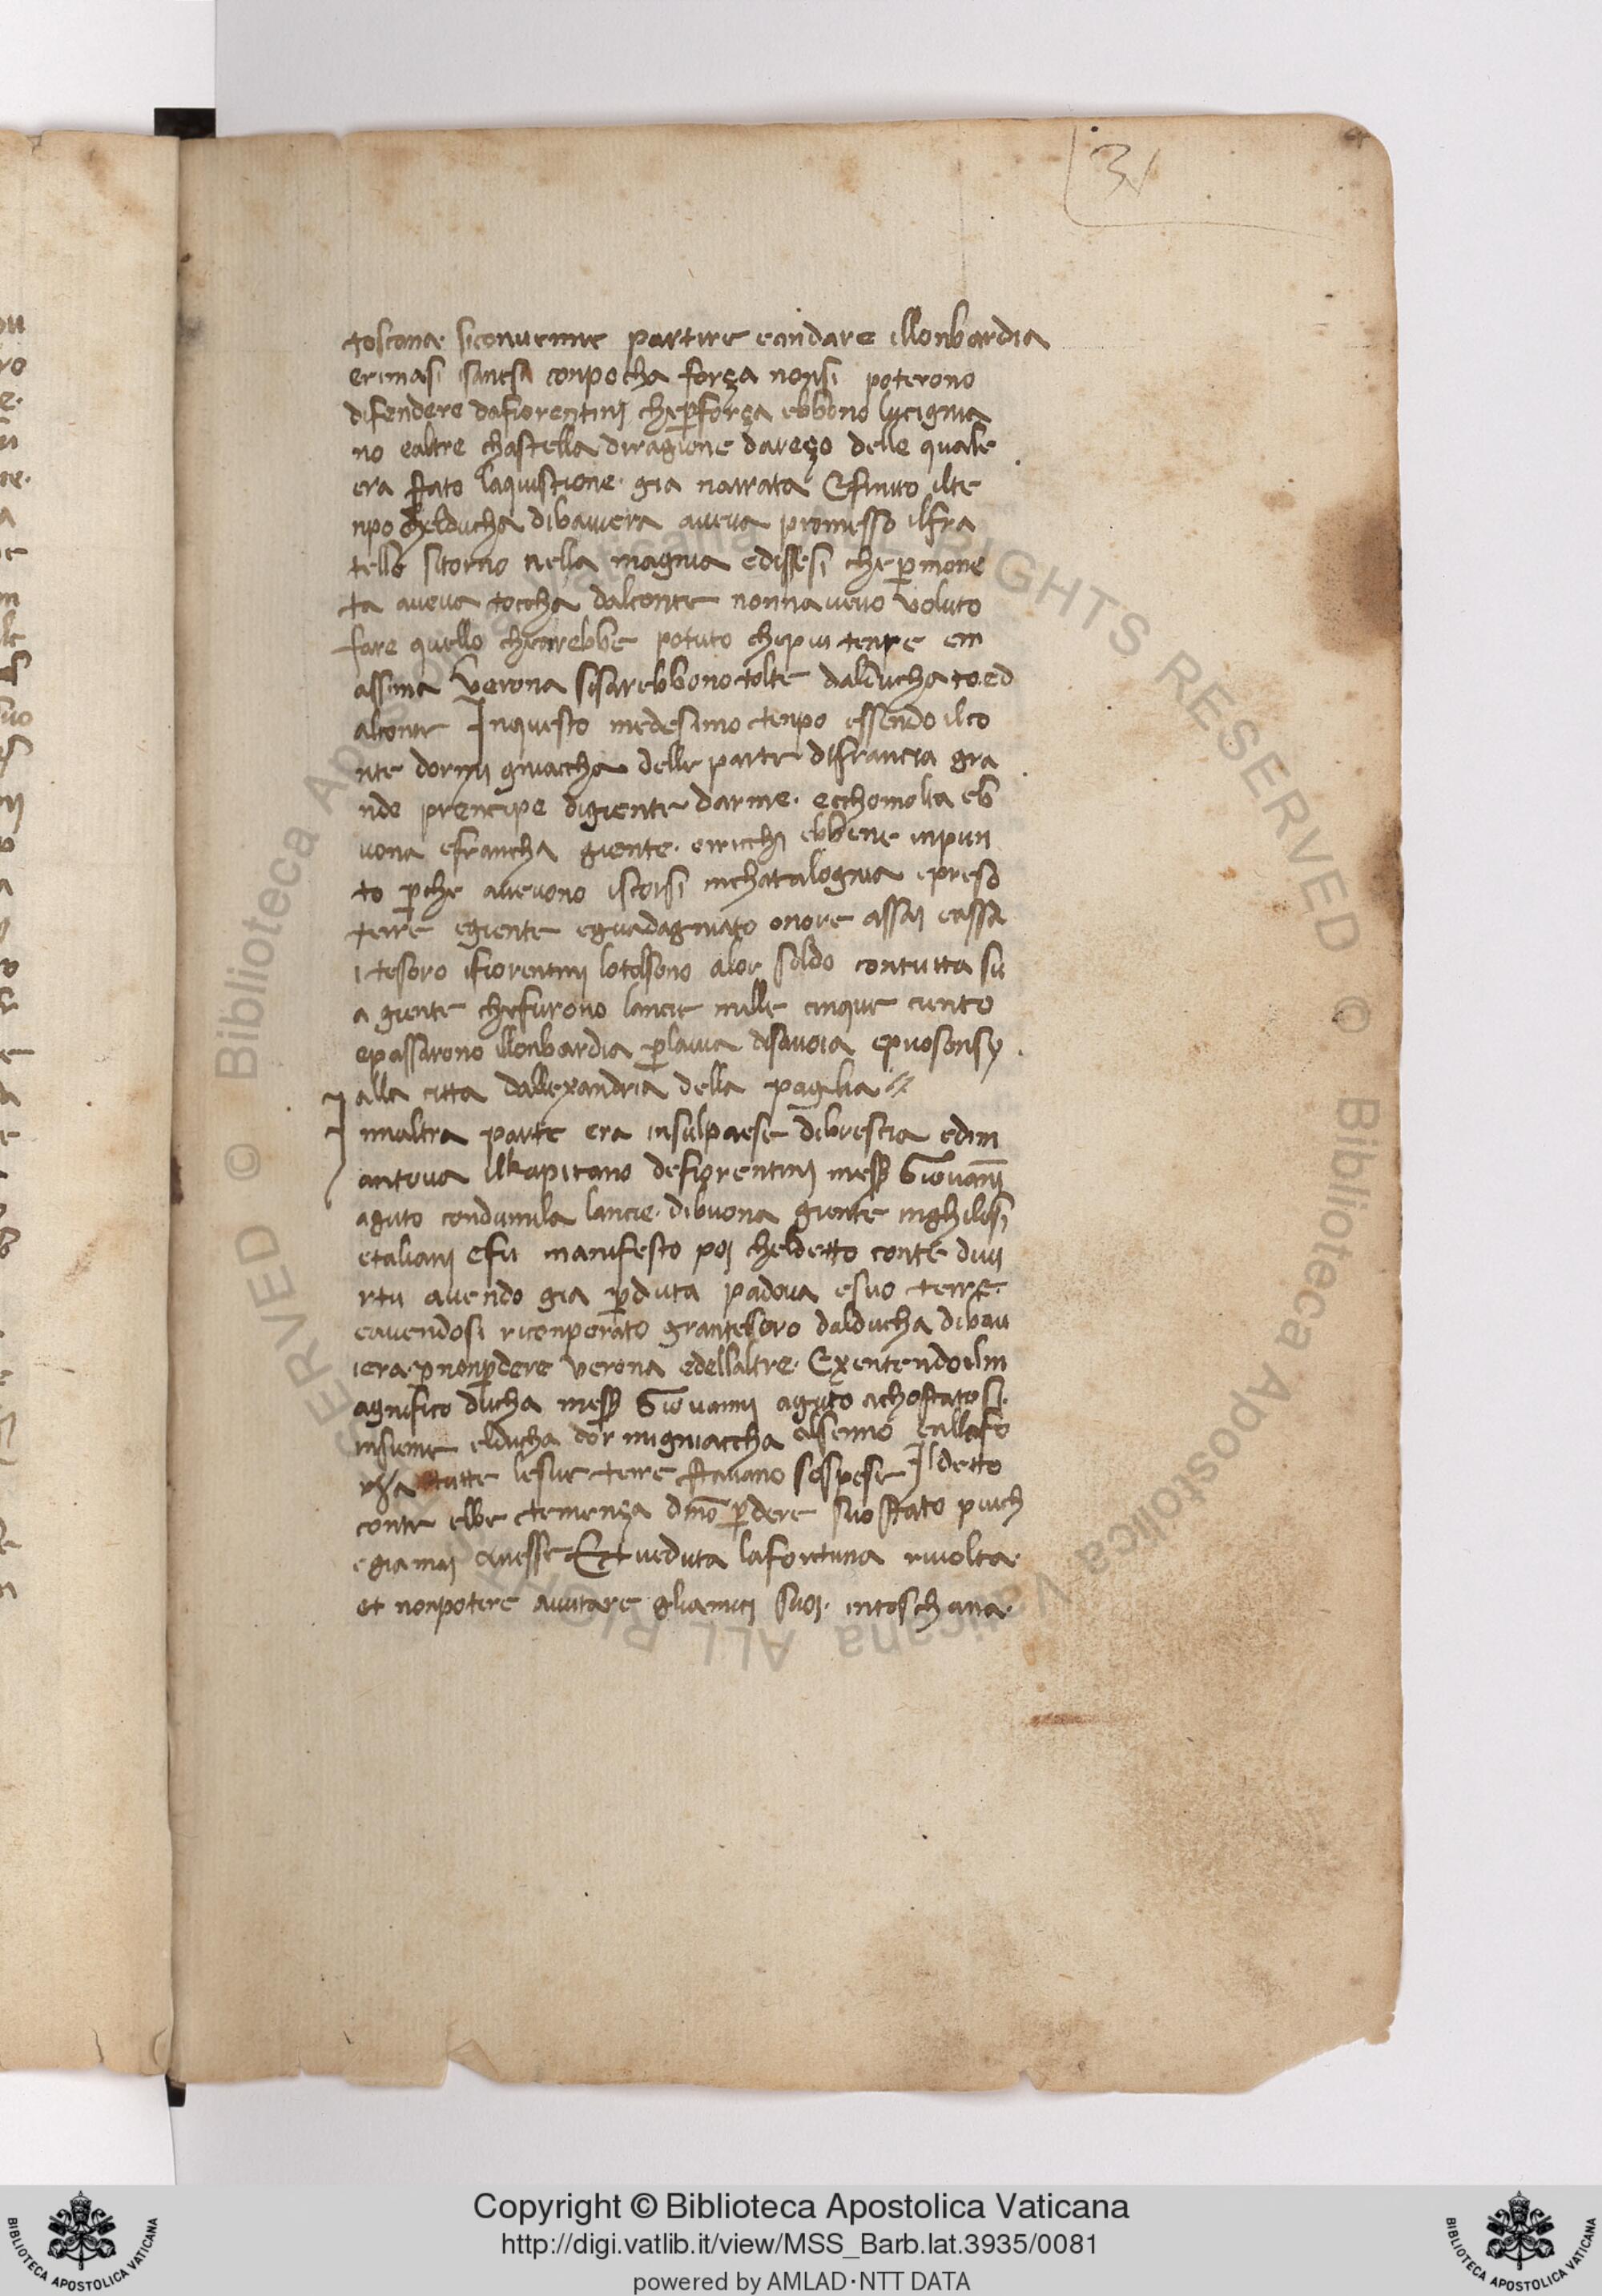 31
toscana siconvenne partire eandare illonbardia
erimasi isanesi conpocha força nonsi poterono
difendere dafiorentinj cheperforça ebbono lucignia
no ealtre chastella diragione dareço delle quale
era stato laquistione gia narrata Efinito ilte
npo chelducha dibaviera aveva promesso ilfra
tello sitorno nella magnia edissesi che permone
ta aveva toccha dalconte nonnavevo voluto
fare quello chearebbe potuto chepiu terre em
assima Verona sisarebbono tolte dalducha toed
alconte Inquesto medesimo tenpo essendo ilco
nte dormj gniaccha delle parte difrancia gra
nde prencipe digiente darme ecchomolta eb
uona efrancha giente ericchi ebbene inpun
to perche avevono iscorsi inchatalognia epreso
terre egiente eguadagniato onore assaj eassa
i tesoro ifiorentinj lotolsono alor soldo contutta su
a giente chefurono lancie mille cinque ciento
epassarono illonbardia perlavia disavoia epuosonsy
alla citta dallexandria della paglia
Innaltra parte era insulpaese dibrescia edim
antova ilkapitano defiorentinj messer Giovannj
aguto condumila lancie dibuona giente inghilesi
etalianj Efu manifesto poj cheldetto conte divi
rtu avendo gia perduta padova esuo terre
eavendosi riconperato grantesoro dalducha dibav
iera pernonperdere verona edellaltre Exentendo ilm
agnifico ducha messer Giovannj aguto achostatosi
insieme elducha dor migniaccha alsenno eallafo
rza tutte lesue terre stavano sospese Ildetto
conte ebbe temença dinon perdere suo stato piuch
egiamaj avesse Et veduta lafortuna rivolta
et nonpotere aiutare gliamicj suoj intoschana
© Biblioteca Apostolica Vaticana ALL RIGHTS RESERVED © Biblioteca Apostolica Vaticana ALL RIGHTS RESERVED
Copyright © Biblioteca Apostolica Vaticana
http://digi.vatlib.it/view/MSS_Barb.lat.3935/0081
powered by AMLAD·NTT DATA
BIBLIOTECA APOSTOLICA VATICANA
BIBLIOTECA APOSTOLICA VATICANA